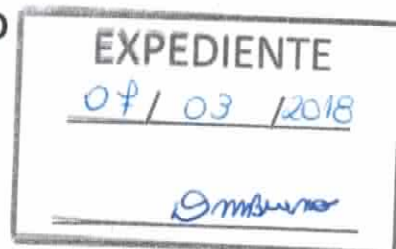 O
EXPEDIENTE
07/03/2018